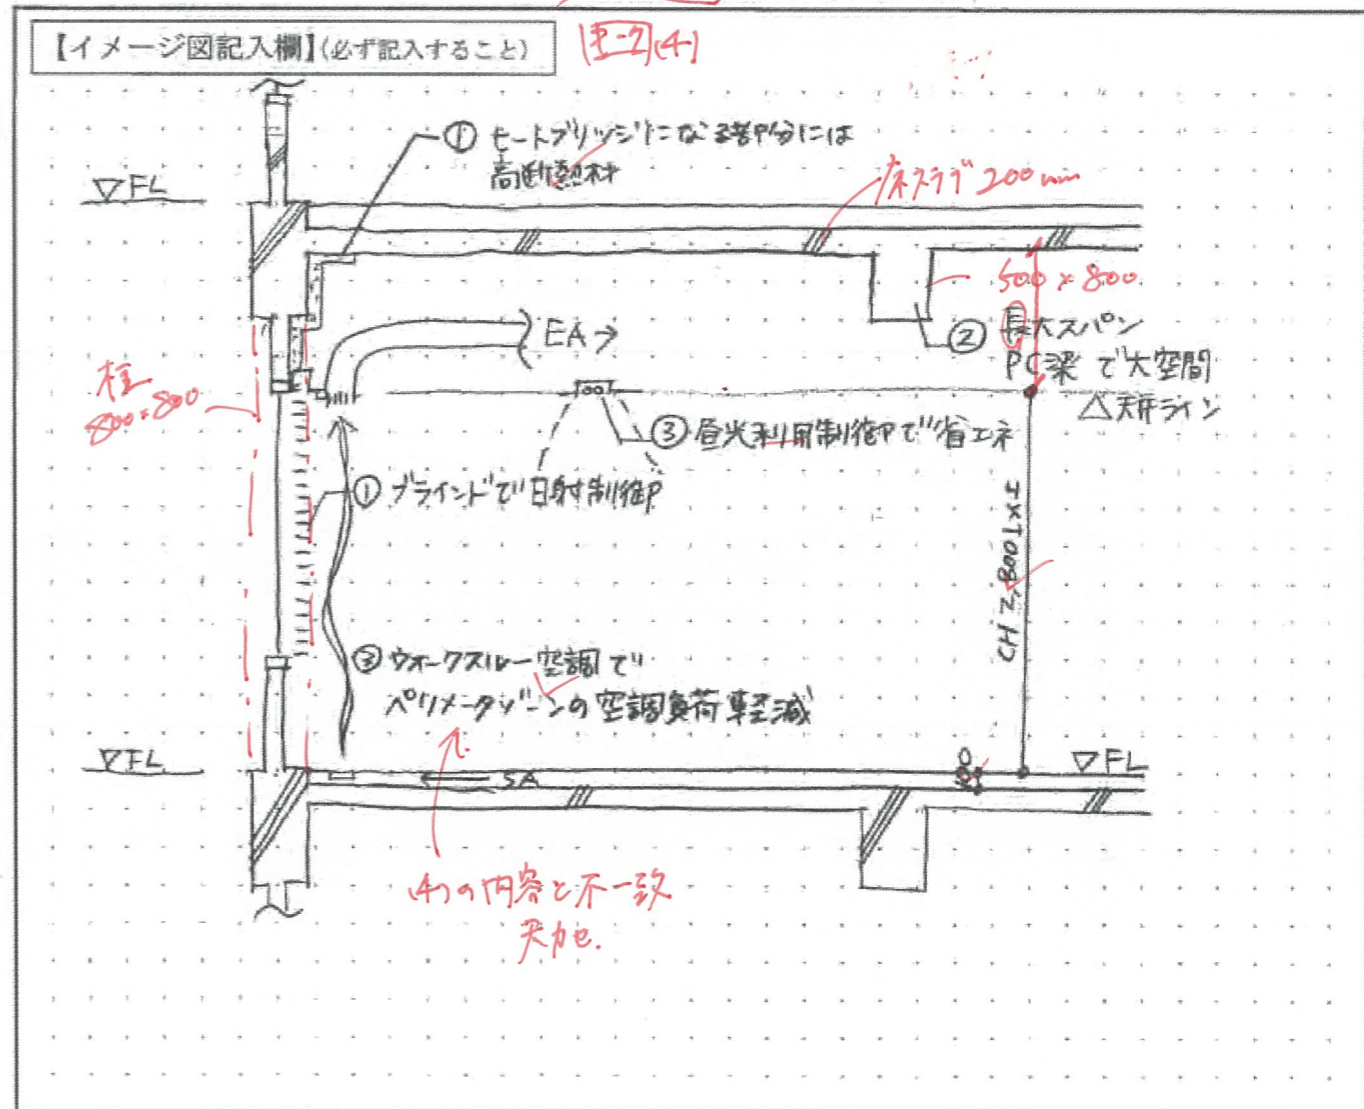 【イメージ図記入欄】(必ず記入すること)
(4)
① ヒートブリッジになる部分には
高断熱材
▽FL
床スラブ 200mm
500×800
② 長大スパン
PC梁で大空間
△天井ライン
EA→
柱
800×800
③ 昼光利用制御で省エネ
① ブラインドで日射制御
CH 2,800以上
③ ウォークスルー空調で
ペリメータゾーンの空調負荷軽減
▽FL
SA
▽FL
(4)の内容と不一致